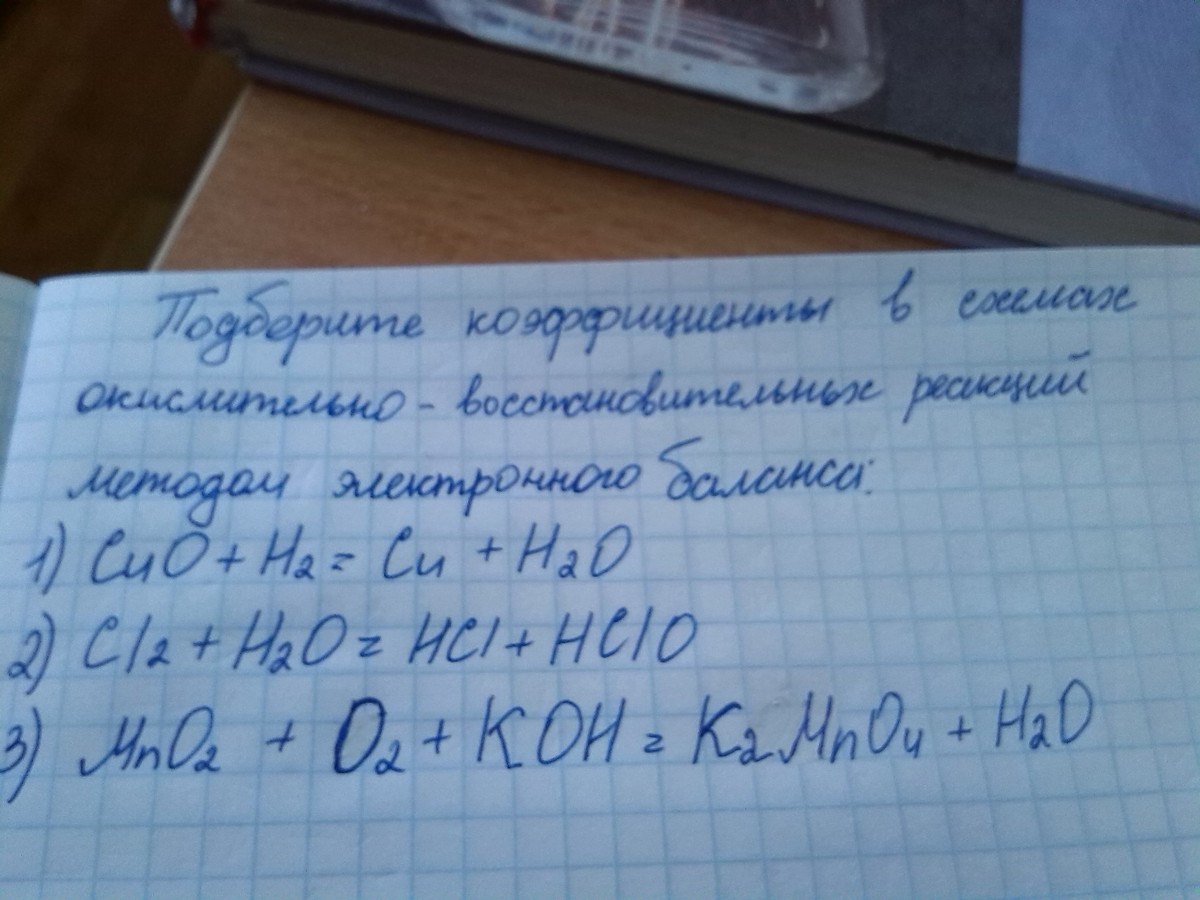 Подберите коэффициенты в схемах
окислительно - восстановительных реакций
методом электронного баланса:
1) CuO + H₂ = Cu + H₂O
2) Cl₂ + H₂O = HCl + HClO
3) MnO₂ + O₂ + KOH = K₂MnO₄ + H₂O